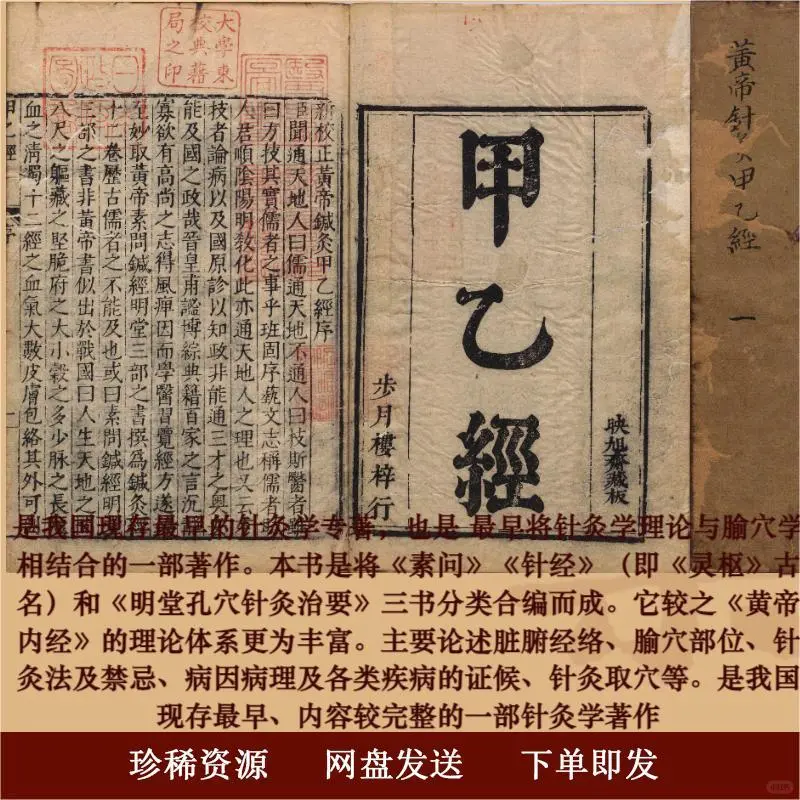 黃帝針灸甲乙經
一
映旭齋藏板
甲乙經
步月樓梓行
大學東
校典藉
局之印
新校正黃帝鍼灸甲乙經序
臣聞通天地人曰儒通天地不通人曰技斯醫者雖
曰方技其實儒者之事乎班固序藝文志稱儒者
人君順陰陽明教化此亦通天地人之理也又云
技者論病以及國原診以知政非能通三才之奧
能及國之政哉晉皇甫謐博綜典籍百家之言沉
寡欲有高尚之志得風痺因而學醫習覽經方遂
至妙取黃帝素問鍼經明堂三部之書撰爲鍼灸
十二卷歷古儒者之不能及也或曰素問鍼經明
三部之書非黃帝書似出於戰國曰人生天地之
八尺之軀藏之堅脆府之大小穀之多少脉之長
血之清濁十二經之血氣大數皮膚包絡其外可
甲乙經
序
一
是我国现存最早的针灸学专著，也是 最早将针灸学理论与腧穴学
相结合的一部著作。本书是将《素问》《针经》（即《灵枢》古
名）和《明堂孔穴针灸治要》三书分类合编而成。它较之《黄帝
内经》的理论体系更为丰富。主要论述脏腑经络、腧穴部位、针
灸法及禁忌、病因病理及各类疾病的证候、针灸取穴等。是我国
现存最早、内容较完整的一部针灸学著作
珍稀资源 网盘发送 下单即发